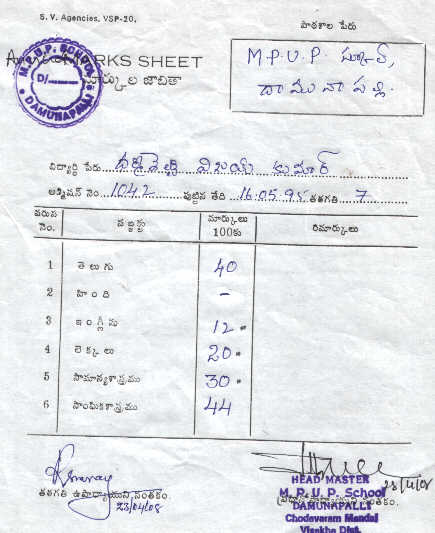 S. V. Agencies, VSP-20.
పాఠశాల పేరు
MARKS SHEET
మార్కుల జాబితా
M.P.U.P. స్కూల్,
దామునాపల్లి.
M. P. U. P. SCHOOL
D/
DAMUNAPALLI
విద్యార్థి పేరు విజయ్ కుమార్
అడ్మిషన్ నెం 1042 పుట్టిన తేది 16.05.95 తరగతి 7
వరుస నెం. సబ్జెక్టు మార్కులు 100కు రిమార్కులు
1 తెలుగు 40
2 హింది -
3 ఇంగ్లీషు 12
4 లెక్కలు 20
5 సామాన్యశాస్త్రము 30
6 సాంఘికశాస్త్రము 44
తరగతి ఉపాధ్యాయుని సంతకం.
23/04/08
23/4/08
HEAD MASTER
M. P. U. P. School
DAMUNAPALLI
Chodavaram Mandal
Visakha Dist.